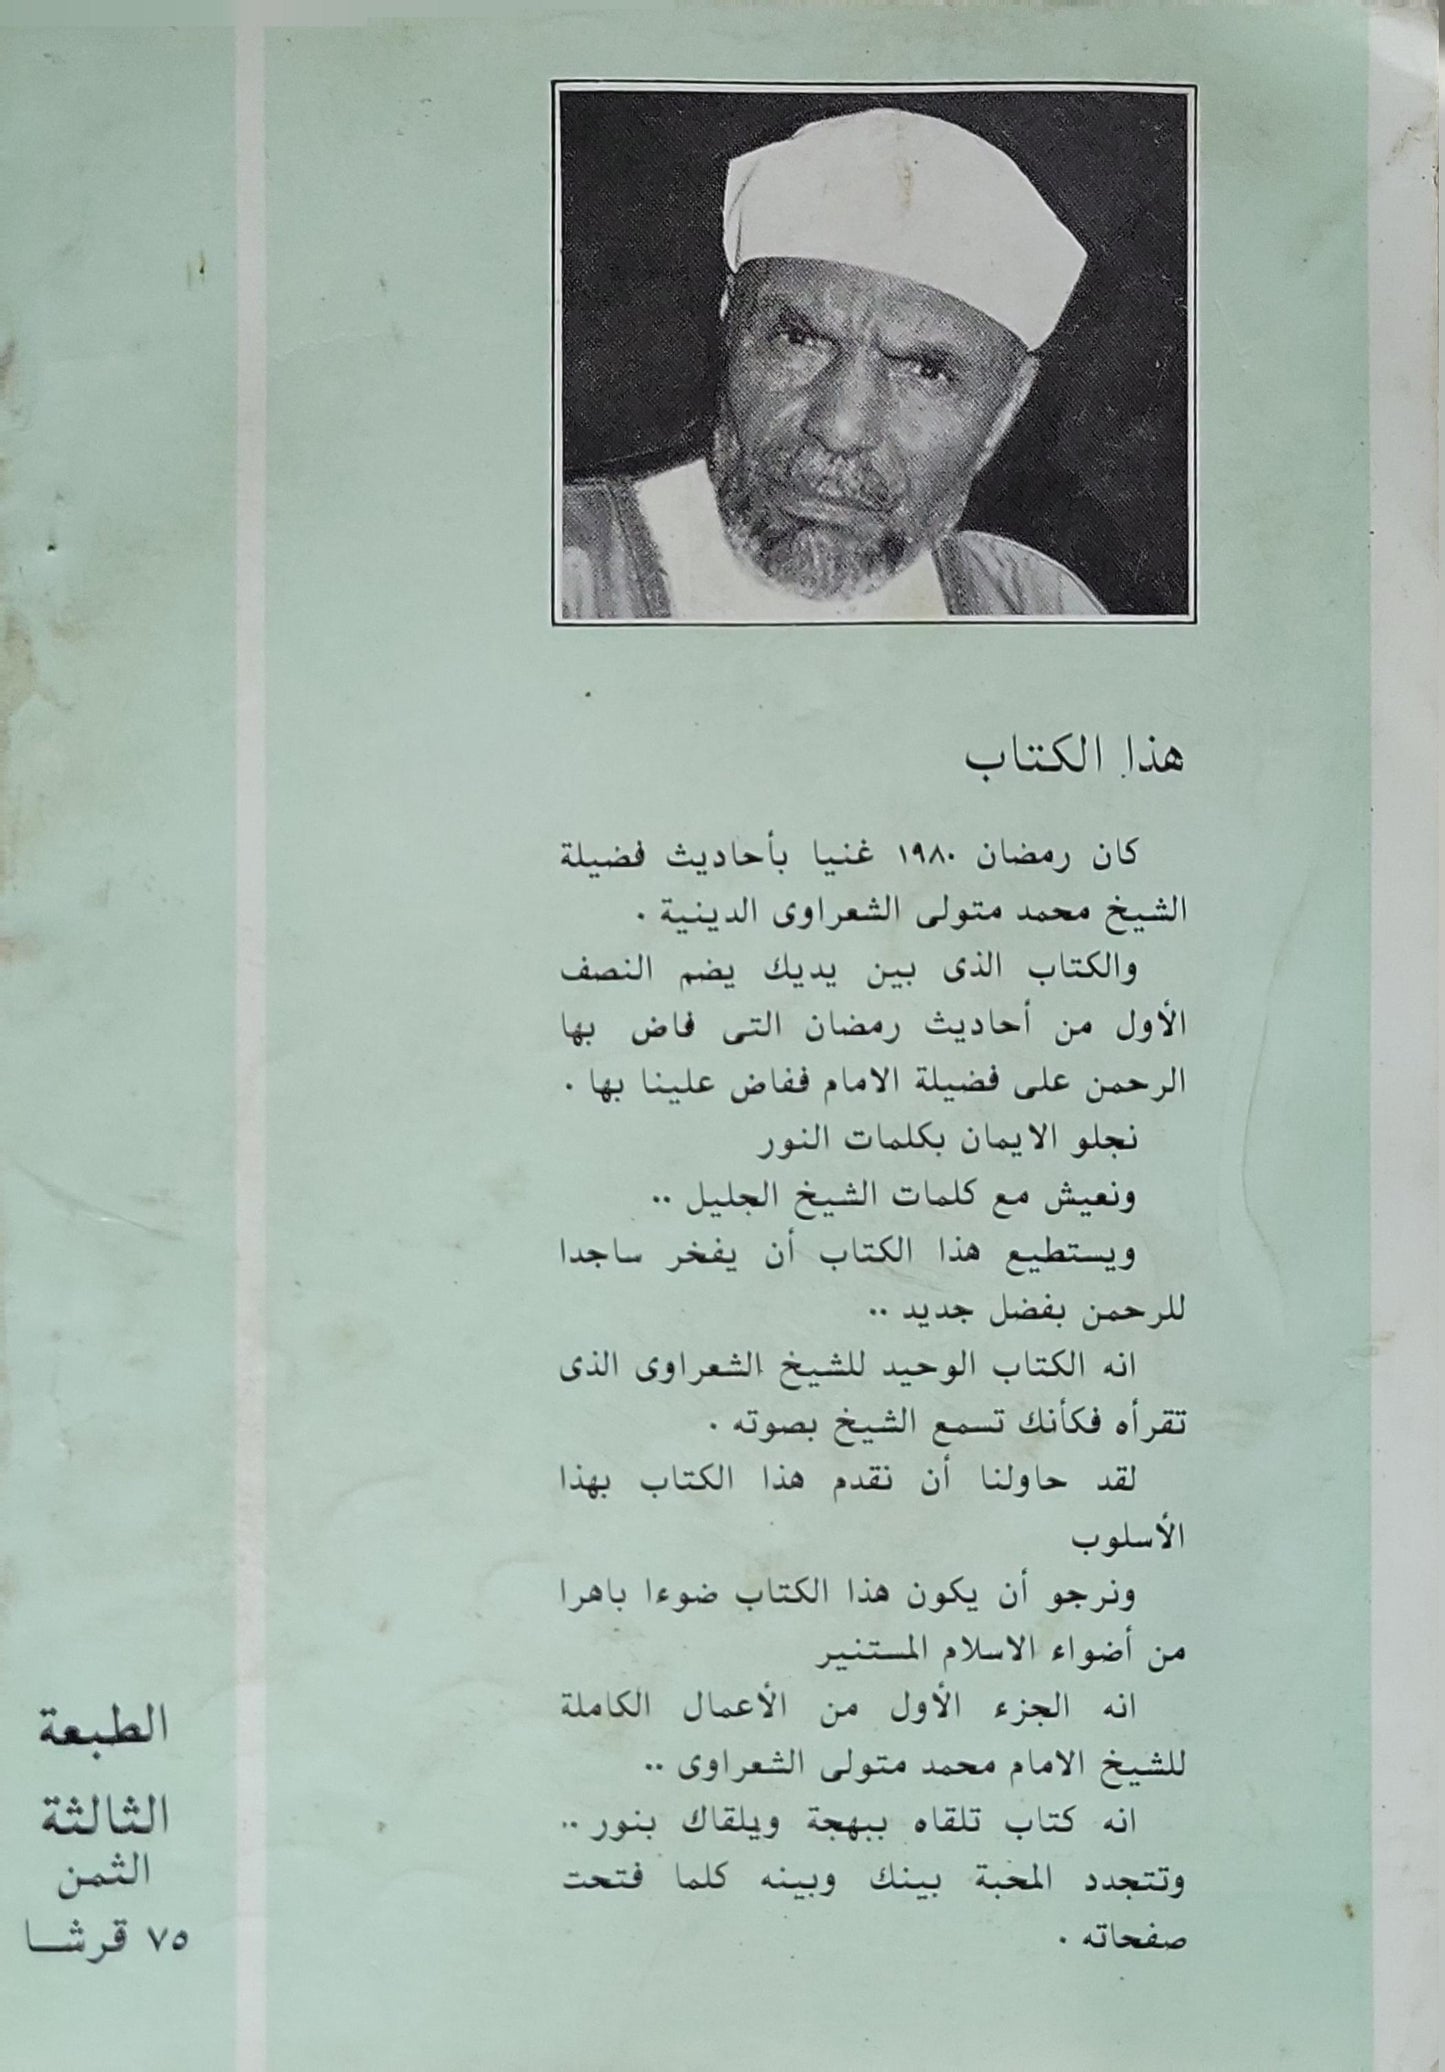 هذا الكتاب
كان رمضان ١٩٨٠ غنيا بأحاديث فضيلة
الشيخ محمد متولى الشعراوى الدينية .
والكتاب الذى بين يديك يضم النصف
الأول من أحاديث رمضان التى فاض بها
الرحمن على فضيلة الامام ففاض علينا بها .
نجلو الايمان بكلمات النور
ونعيش مع كلمات الشيخ الجليل ..
ويستطيع هذا الكتاب أن يفخر ساجدا
للرحمن بفضل جديد ..
انه الكتاب الوحيد للشيخ الشعراوى الذى
تقرأه فكأنك تسمع الشيخ بصوته .
لقد حاولنا أن نقدم هذا الكتاب بهذا
الأسلوب
ونرجو أن يكون هذا الكتاب ضوءا باهرا
من أضواء الاسلام المستنير
انه الجزء الأول من الأعمال الكاملة
للشيخ الامام محمد متولى الشعراوى ..
انه كتاب تلقاه ببهجة ويلقاك بنور ..
وتتجدد المحبة بينك وبينه كلما فتحت
صفحاته .
الطبعة
الثالثة
الثمن
٧٥ قرشا